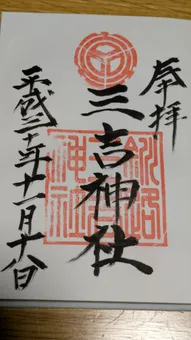 奉拝
三吉神社
平成三十年十一月十八日